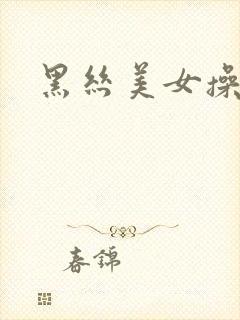 黑丝美女操
春锦